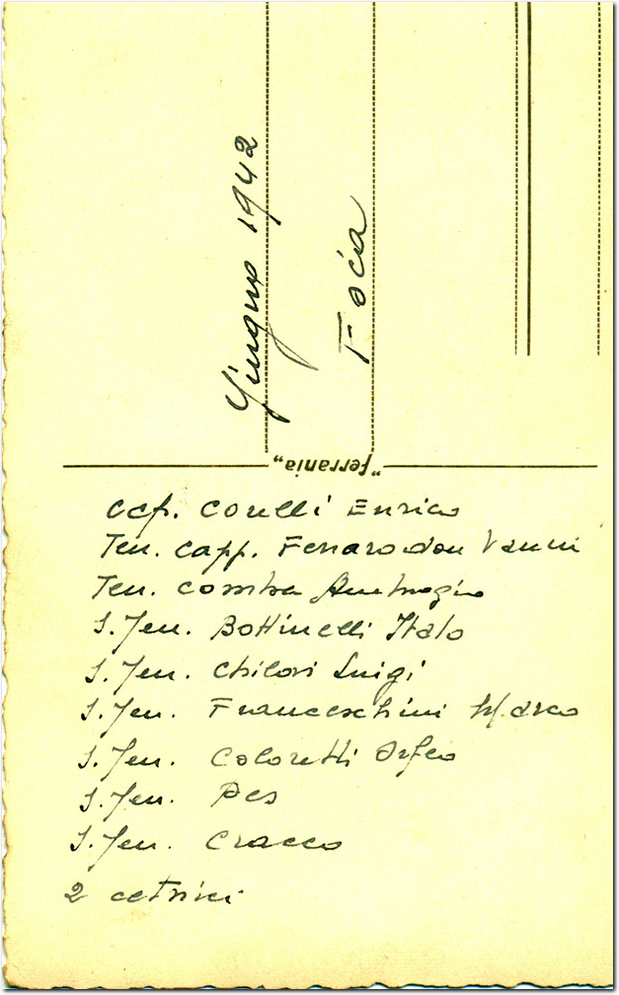 Giugno 1942
Focia
"ferrania„
Cap. Corelli Enrico
Ten. Capp. Ferraro don Vanni
Ten. Ambrogio
S. Ten. Bottinelli Italo
S. Ten. Chilovi Luigi
S. Ten. Franceschini Marco
S. Ten. Coloretti Orfeo
S. Ten. Pes
S. Ten. Cracco
2 cetnici